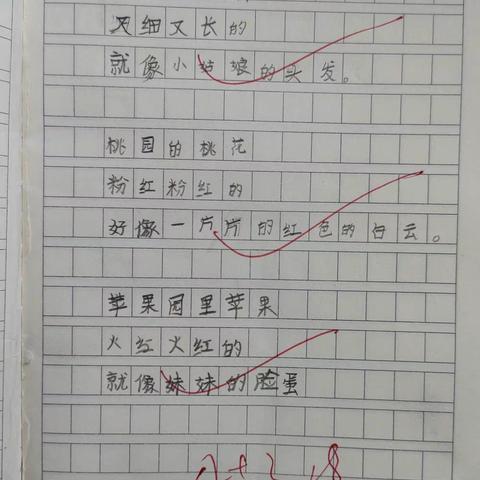 又细又长的
就像小姑娘的头发。
桃园的桃花
粉红粉红的
好像一片片的红色的白云。
苹果园里苹果
火红火红的
就像妹妹的脸蛋